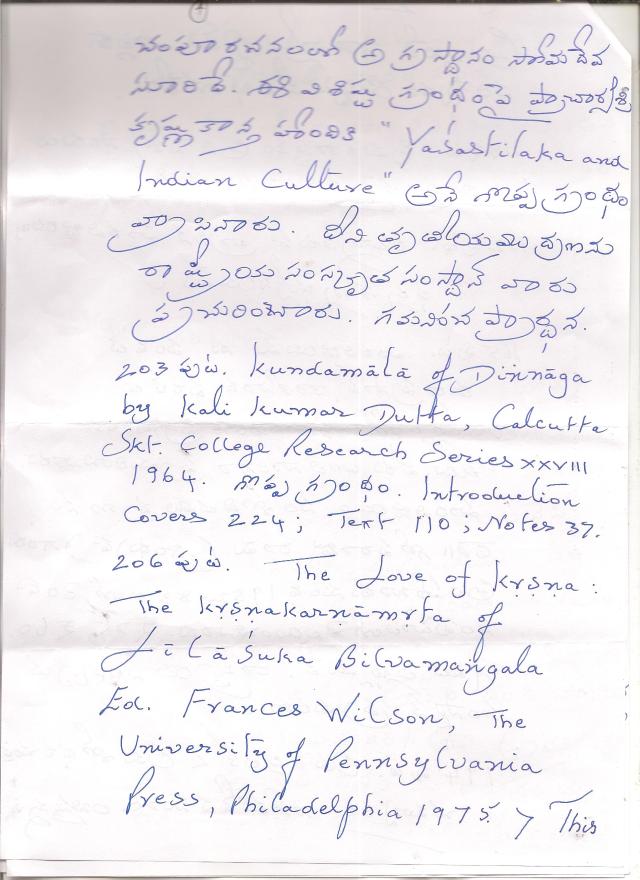 చంపూరచనలలో అగ్రస్థానం సోమదేవ
సూరిదే. ఈ విశిష్ట గ్రంథంపై ప్రాచార్య శ్రీ
కృష్ణకాన్త హాందికి "Yaśastilaka and
Indian Culture" అనే గొప్ప గ్రంథం
వ్రాసినారు. దీని తృతీయముద్రణను
రాష్ట్రీయ సంస్కృత సంస్థాన్ వారు
ప్రచురించారు. గమనించ ప్రార్థన.
203 పుట. Kundamālā of Diṅnāga
by Kali Kumar Dutta, Calcutta
Skt. College Research Series XXVIII
1964. గొప్ప గ్రంథం. Introduction
Covers 224; Text 110; Notes 37.
206 పుట. The Love of Kṛṣṇa:
The Kṛṣṇakarṇāmṛta of
Līlāśuka Bilvamaṅgala
Ed. Frances Wilson, The
University of Pennsylvania
Press, Philadelphia 1975. > This